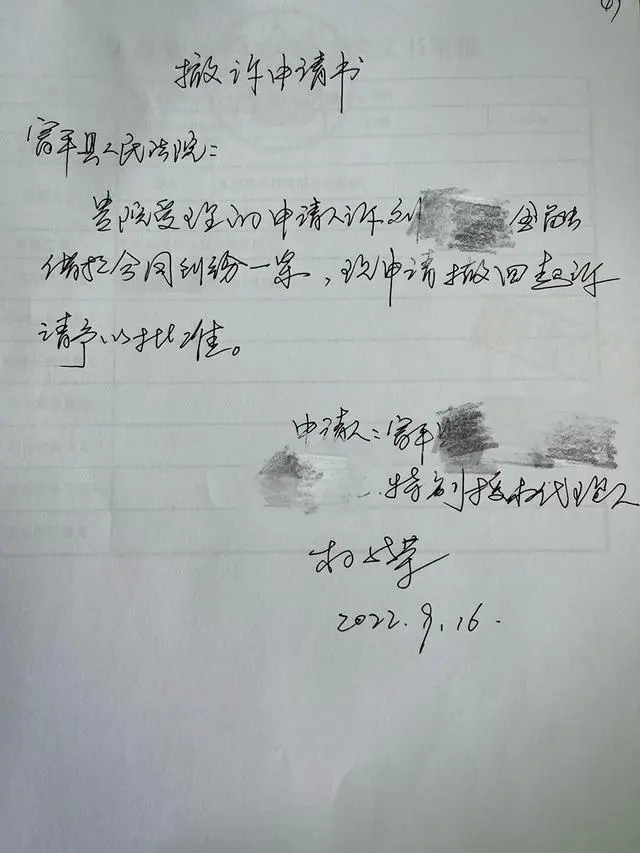 撤诉申请书
富平县人民法院：
贵院受理的申请人诉刘 金融
借款合同纠纷一案，现申请撤回起诉
请予以批准。
申请人：富平
特别授权代理人
2022.9.16.